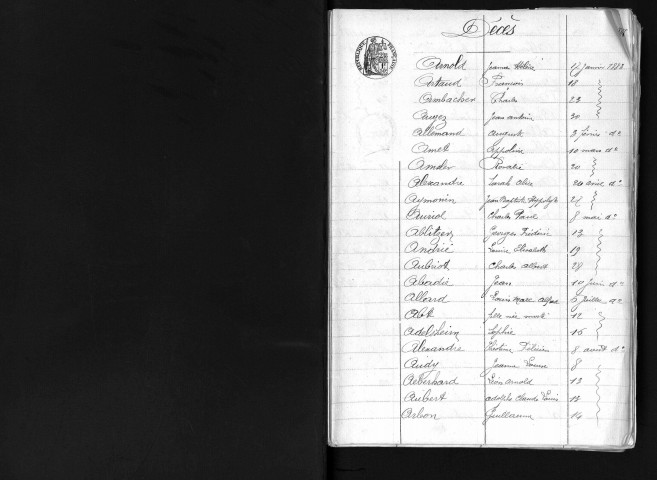 Décès
Arnold Jeanne Hélène 17 Janvier 1883
Artaud François 18
Ambacher Charles 23
Augez Jean antoine 30
Allemand august 3 février do
Amet appoline 10 mars do
Amsler Rosalie 20
Alexandre Sarah alice 20 avril do
Aymonin Jean Baptiste Hippolyte 24
Auriol Charles 8 mai do
Ablitzer Georges Frédéric 13
André Louise Elisabeth 19
Aubriot Charles albert 28
Abadie Jean 10 juin do
Allard Louis Marc alfred 6 juillet do
Abt fille née morte 12
Adelsheim Sophie 16
Alexandre 8 août do
Audy Jeanne Louise 8
Aeberhard Léon arnold 13
Aubert adolphe claude Louis 13
Arbon Guillaume 14